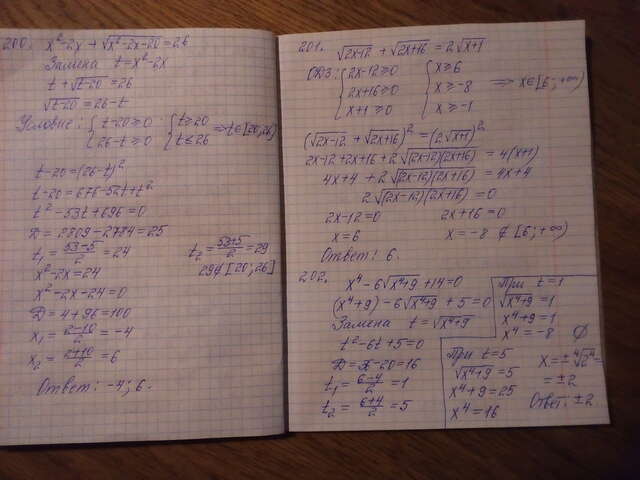 200. x²-2x + √(x²-2x-20) = 26
Замена t = x²-2x
t + √(t-20) = 26
√(t-20) = 26-t
Условие: { t-20 ≥ 0 { t ≥ 20
26-t ≥ 0 t ≤ 26 ⇒ t∈[20,26]
t-20 = (26-t)²
t-20 = 676-52t+t²
t²-53t+696=0
D = 2809-2784=25
t₁ = (53-5)/2 = 24 t₂ = (53+5)/2 = 29
x²-2x=24 29∉[20,26]
x²-2x-24=0
D = 4+96=100
x₁ = (2-10)/2 = -4
x₂ = (2+10)/2 = 6
Ответ: -4; 6.
201. √(2x-12) + √(2x+16) = 2√(x+1)
ОДЗ: { 2x-12≥0 { x≥6
2x+16≥0 x≥-8 ⇒ x∈[6;+∞)
x+1≥0 x≥-1
(√(2x-12) + √(2x+16))² = (2√(x+1))²
2x-12+2x+16+2√((2x-12)(2x+16)) = 4(x+1)
4x+4 + 2√((2x-12)(2x+16)) = 4x+4
2√((2x-12)(2x+16)) = 0
2x-12=0 2x+16=0
x=6 x=-8 ∉ [6;+∞)
Ответ: 6.
202. x⁴-6√(x⁴+9)+14=0
(x⁴+9)-6√(x⁴+9)+5=0
Замена t=√(x⁴+9)
t²-6t+5=0
D=36-20=16
t₁ = (6-4)/2 = 1
t₂ = (6+4)/2 = 5
При t=1
√(x⁴+9) = 1
x⁴+9=1
x⁴=-8 ∅
При t=5
√(x⁴+9) = 5
x⁴+9=25
x⁴=16
x=±⁴√2⁴=
=±2
Ответ: ±2.